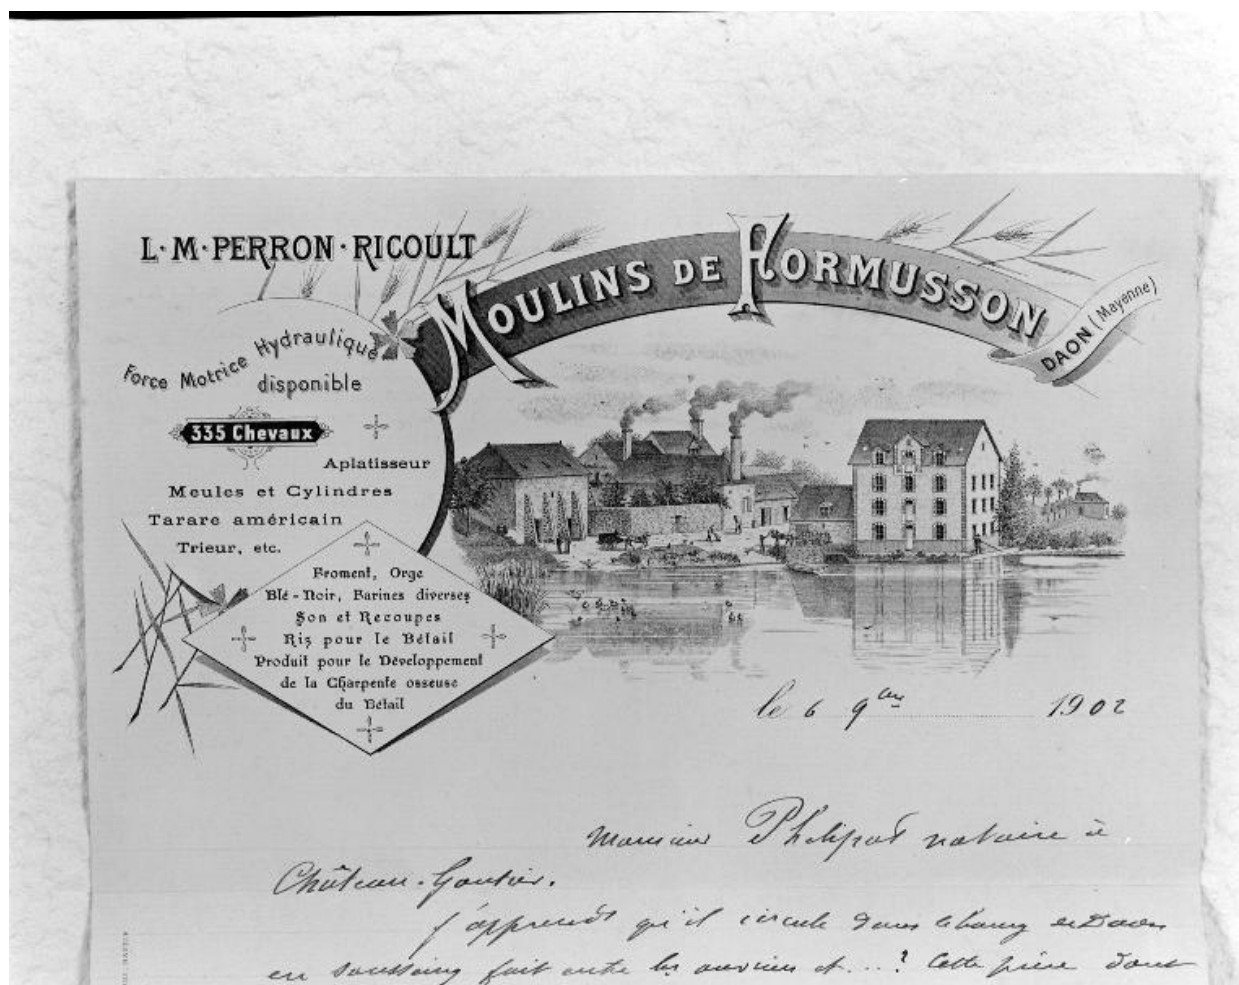 L·M·PERRON·RICOULT
MOULINS DE FORMUSSON
DAON (Mayenne)
Force Motrice Hydraulique
disponible
335 Chevaux
Aplatisseur
Meules et Cylindres
Tarare américain
Trieur, etc.
Froment, Orge
Blé-Noir, Farines diverses
Son et Recoupes
Riz pour le Bétail
Produit pour le Développement
de la Charpente osseuse
du Bétail
le 6 9bre 1902
Monsieur Philipot notaire à
Château-Gontier.
J'apprends qu'il circule dans le bourg de Daon
un soussaing fait entre les ouvriers et...? Cette pièce dont